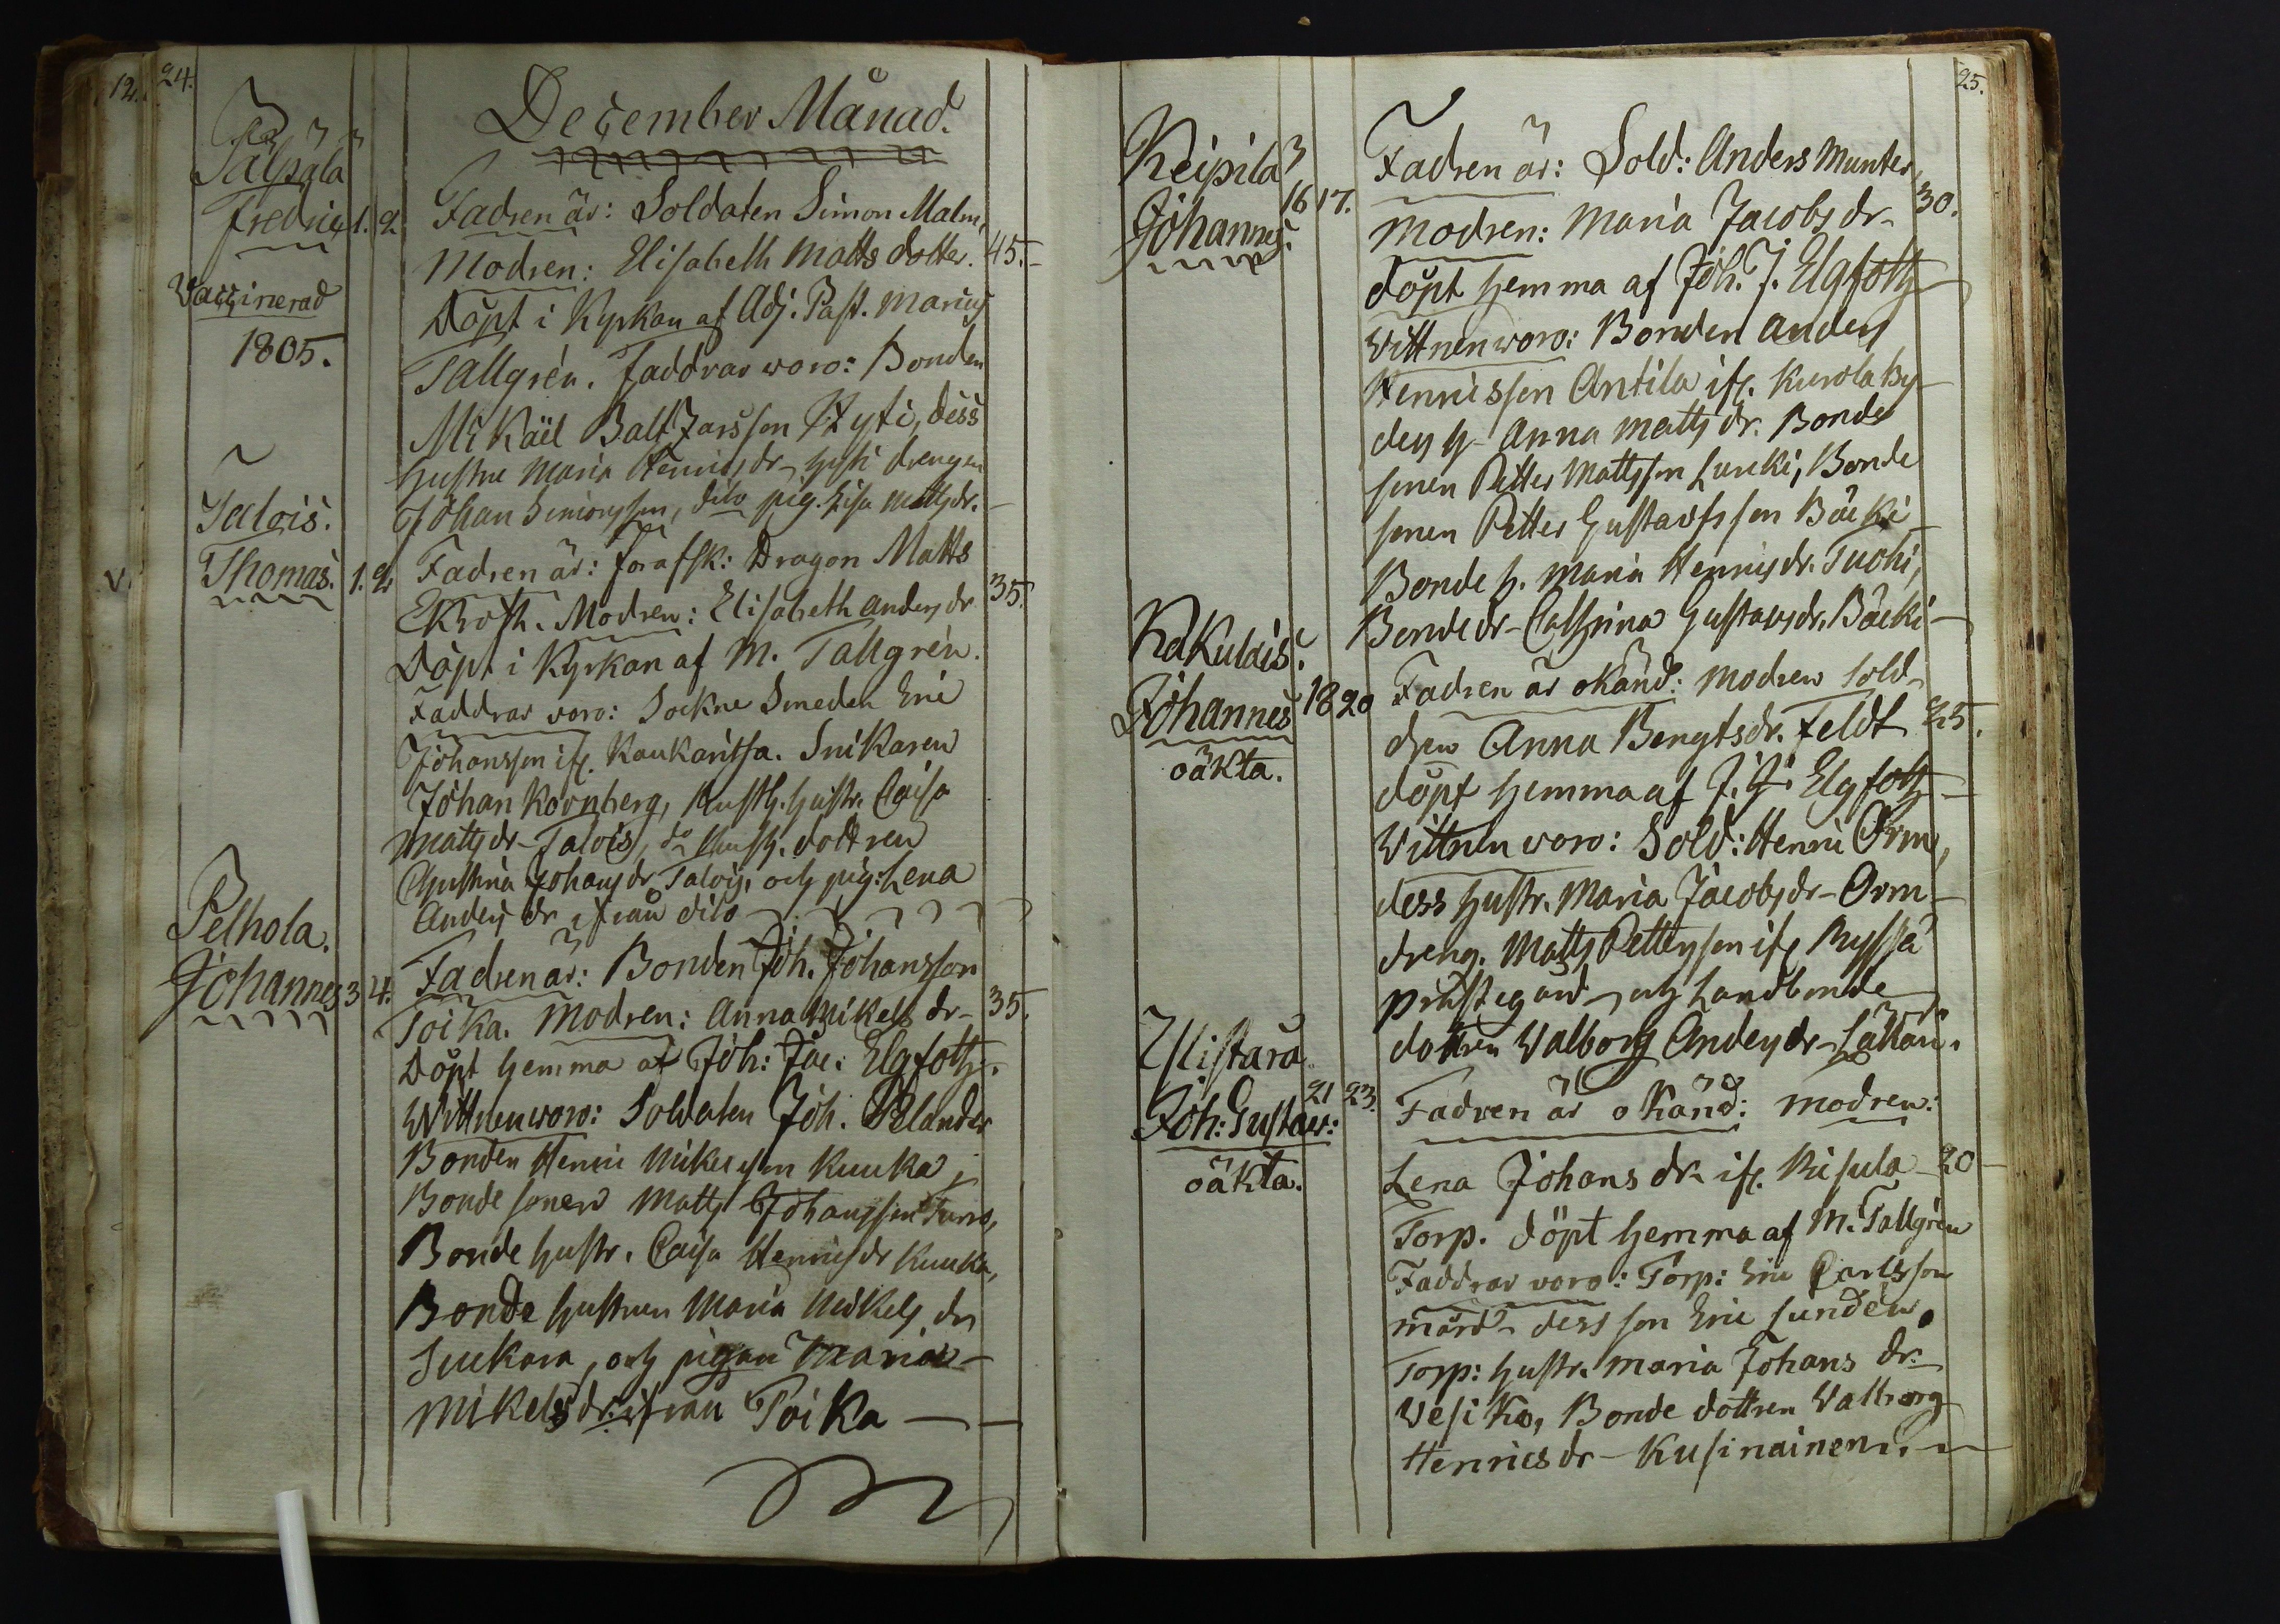 12. 24.
December Månad.
Pälpälä
Fredric 1. 2.
Vaccinerad
1805.
Fadren är: Soldaten Simon Malm,
Modren: Elisabeth Matts dotter. 45.
Döpt i Kyrkan af Adj: Past. Marius
Tallgrén. Faddrar woro: Bonden
Mikaël Baltzarsson Hyti, dess
hustru Maria Henricsdr Hyti drengen
Johan Simonsson, dito pig. Lisa Mattsdr.
Talois.
Thomas. 1. 2.
V.
Fadren är: förafsk: Dragon Matts
Ekroth. Modren: Elisabeth Andersdr 35.
Döpt i Kyrkan af M. Tallgrén.
Faddrar voro: Sockne Smeden Eric
Johansson ifr. Kaukaritsa. Snikaren
Johan Kornberg, Rusth. hustr. Caisa
Mattsdr Talois, Rusth. dottren
Christina Johansdr Talois, och pig: Lena
Anders dr ifrån dito
Pelhola.
Johannes 3 4.
Fadren är: Bonden Joh. Johansson
Toika. Modren: Anna Mikels dr 35.
Döpt hemma af Joh: Jac: Elgfoth.
Wittnen woro: Soldaten Joh. Pelander
Bonden Henric Mikelsson Kuuka,
Bonde sonen Matts Johansson Turro,
Bonde hustr. Caisa Henricsdr Kuuka,
Bonde hustrun Maria Mikels dr
Suckara, och pigan Maria
Mikelsdr. ifrån Toika
25.
Keipilä
Johannes. 16 17.
Fadren är: Sold: Anders Munter,
Modren: Maria Jacobsdr 30.
döpt hemma af Joh. J. Elgfoth
Wittnen woro: Bonden Anders
Henricsson Antila ifr. Kurola by
dess h. Anna Mattsdr. Bonde
sonen Petter Mattsson Lucki, Bonde
sonen Petter Gustavsson Bäcki
Bonde h. Maria Henricsdr. Tuohi,
Bonde dr Cathrina Gustavsdr. Bäcki
Kakulais.
Johannes 18 20
oäkta.
Fadren är okänd: Modren Sold
dren Anna Bengtsdr. Feldt 25.
döpt hemma af J. J. Elgfoth
Wittnen woro: Sold: Henric Orm,
dess hustr. Maria Jacobsdr Orm
dreng. Matts Pettersson ifr Ryssä
prästegård och Landbonde
dottren Walborg Andersdr
Ylistaro
Joh: Gustav: 21 23.
oäkta.
Fadren är okänd: Modren:
Lena Johans dr ifr. Risula 20
Torp. döpt hemma af M. Tallgrén
Faddrar voro: Torp: Eric Carlsson
Mård dess son Eric Sundén.
Torp: hustr. Maria Johans dr.
Vesiko, Bonde dottren Walborg
Henrics dr Kusinainen.